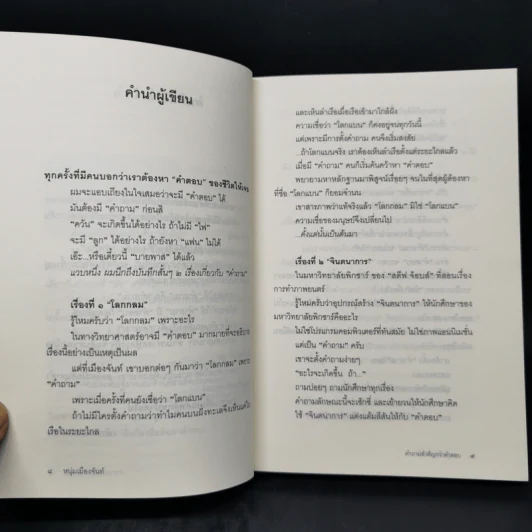 คำนำผู้เขียน
ทุกครั้งที่มีคนบอกว่าเราต้องหา “คำตอบ” ของชีวิตให้เจอ
ผมจะแอบเถียงในใจเสมอว่าจะมี “คำตอบ” ได้
มันต้องมี “คำถาม” ก่อนสิ
“ควัน” จะเกิดขึ้นได้อย่างไร ถ้าไม่มี “ไฟ”
จะมี “ลูก” ได้อย่างไร ถ้ายังหา “แฟน” ไม่ได้
เอ๊ะ...หรือเดี๋ยวนี้ “บายพาส” ได้แล้ว
แวบหนึ่ง ผมนึกถึงบันทึกสั้นๆ ๒ เรื่องเกี่ยวกับ “คำถาม”
เรื่องที่ ๑ “โลกกลม”
รู้ไหมครับว่า “โลกกลม” เพราะอะไร
ในทางวิทยาศาสตร์อาจมี “คำตอบ” มากมายที่จะอธิบาย
เรื่องนี้อย่างเป็นเหตุเป็นผล
แต่ที่เมืองจันท์ เขาบอกต่อๆ กันมาว่า “โลกกลม” เพราะ
“คำถาม”
เพราะเมื่อครั้งที่คนยังเชื่อว่า “โลกแบน”
ถ้าไม่มีใครตั้งคำถามว่าทำไมคนบนฝั่งทะเลจึงเห็นแค่
เรือในระยะไกล
๘ หนุ่มเมืองจันท์
และเห็นลำเรือเมื่อเรือเข้ามาใกล้ฝั่ง
ความเชื่อว่า “โลกแบน” ก็คงอยู่จนทุกวันนี้
แต่เพราะมีการตั้งคำถาม คนจึงเริ่มสงสัย
...ถ้าโลกแบนจริง เราต้องเห็นลำเรือตั้งแต่ระยะไกลแล้ว
เมื่อมี “คำถาม” คนก็เริ่มค้นคว้าหา “คำตอบ”
พยายามหาหลักฐานมาพิสูจน์เรื่อยๆ จนในที่สุดผู้ต้องหา
ที่ชื่อ “โลกแบน” ก็ยอมจำนน
เขาสารภาพว่าแท้จริงแล้ว “โลกกลม” มิใช่ “โลกแบน”
ความเชื่อของมนุษย์จึงเปลี่ยนไป
...ตั้งแต่นั้นเป็นต้นมา
เรื่องที่ ๒ “จินตนาการ”
ในมหาวิทยาลัยพิกซาร์ ของ “สตีฟ จ็อบส์” ที่สอนเรื่อง
การทำภาพยนตร์
รู้ไหมครับว่าอุปกรณ์ผู้สร้าง “จินตนาการ” ให้นักศึกษาของ
มหาวิทยาลัยพิกซาร์คืออะไร
ไม่ใช่โปรแกรมคอมพิวเตอร์ที่ทันสมัย ไม่ใช่ภาพแอนนิเมชั่น
แต่เป็น “คำถาม” ครับ
เขาจะตั้งคำถามง่ายๆ
“อะไรจะเกิดขึ้น ถ้า...”
ถามบ่อยๆ ถามนักศึกษาทุกเรื่อง
คำถามลักษณะนี้จะเซ็กซี่ และเย้ายวนให้นักศึกษาคิด
ใช้ “จินตนาการ” แต่งแต้มสีสันให้กับ “คำตอบ”
คำถามสำคัญกว่าคำตอบ ๙